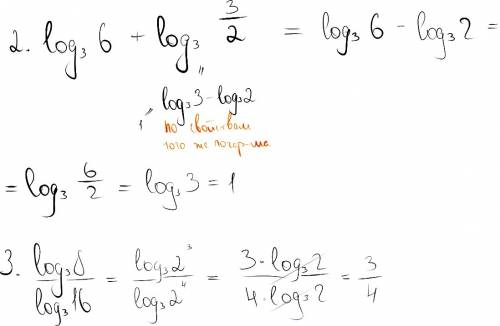 2. log₃ 6 + log₃ 3/2 = log₃ 6 - log₃ 2 =
" log₃3 - log₃2
1 "
по свойствам
того же логар-ма
= log₃ 6/2 = log₃ 3 = 1
3. log₃8 / log₃16 = log₃2³ / log₃2⁴ = 3·log₃2 / 4·log₃2 = 3/4